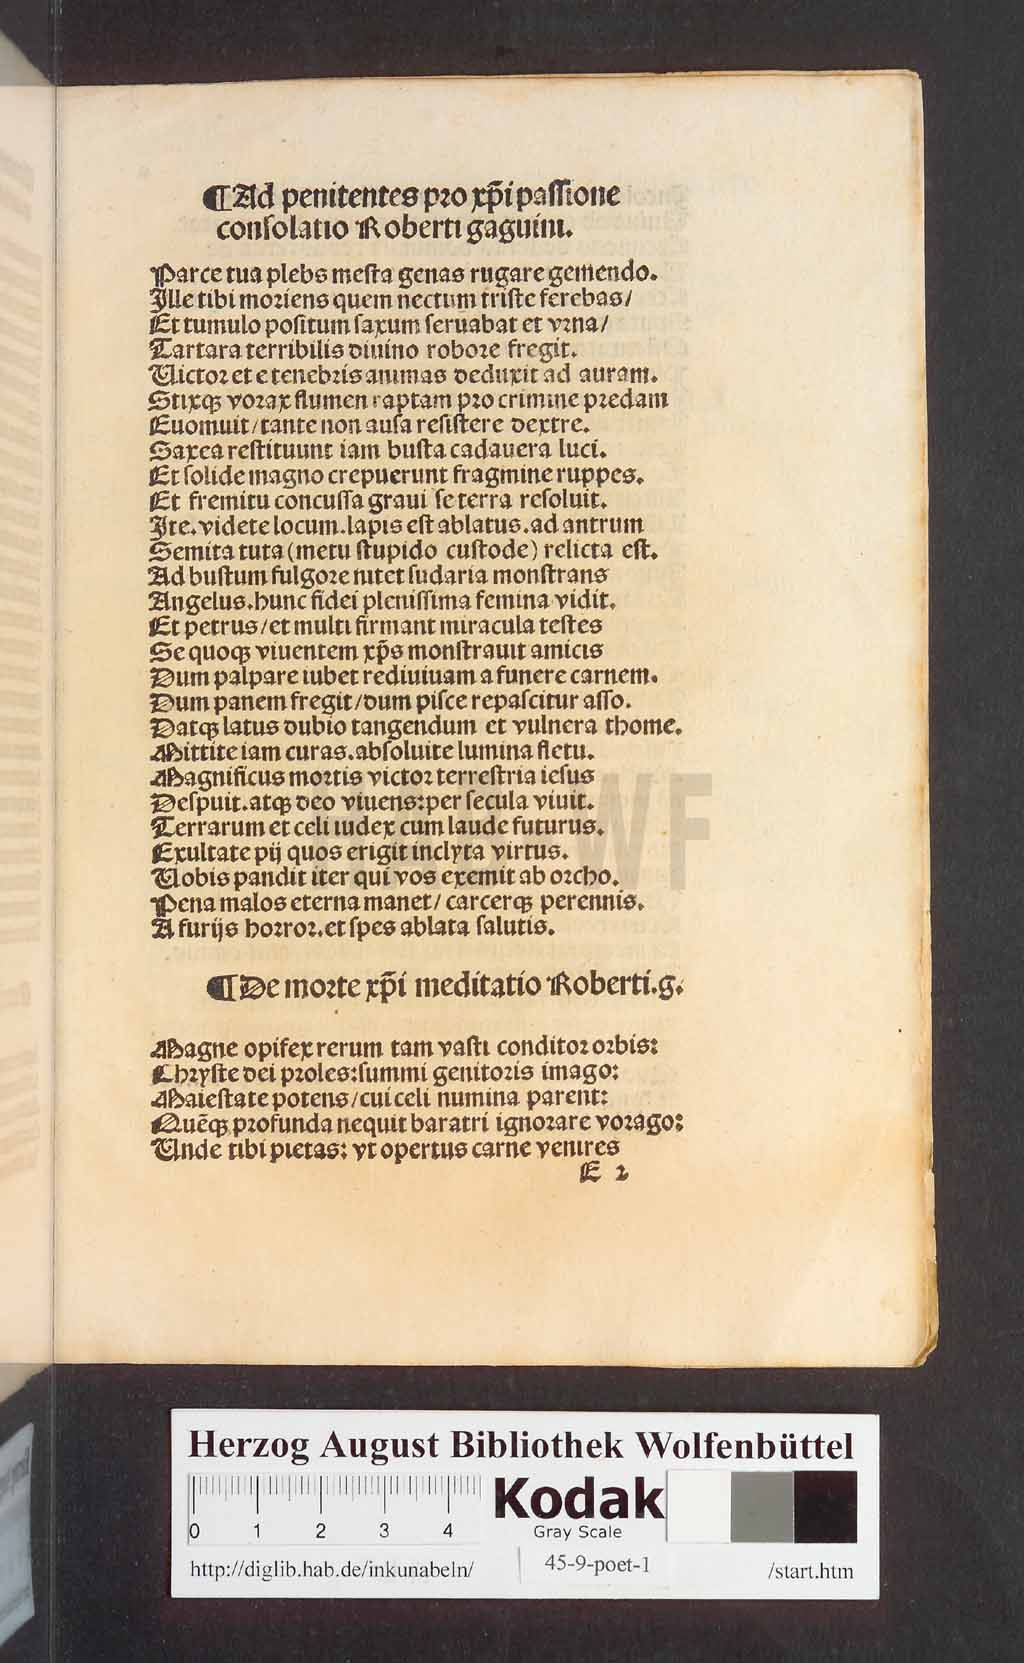 ¶Ad penitentes pro xp̄i passione
consolatio Roberti gaguini.
Parce tua plebs mesta genas rugare gemendo.
Ille tibi moriens quem nectum triste ferebas/
Et tumulo positum saxum seruabat et vrna/
Tartara terribilis diuino robore fregit.
Uictor et e tenebris animas deduxit ad auram.
Stixqꝫ vorax flumen raptam pro crimine predam
Euomuit/tante non ausa resistere dextre.
Saxea restituunt iam busta cadauera luci.
Et solide magno crepuerunt fragmine ruppes.
Et fremitu concussa graui se terra resoluit.
Ite.videte locum.lapis est ablatus.ad antrum
Semita tuta (metu stupido custode) relicta est.
Ad bustum fulgore nitet sudaria monstrans
Angelus.hunc fidei plenissima femina vidit.
Et petrus/et multi firmant miracula testes
Se quoqꝫ viuentem xp̄s monstrauit amicis
Dum palpare iubet rediuiuam a funere carnem.
Dum panem fregit/dum pisce repascitur asso.
Datqꝫ latus dubio tangendum et vulnera thome.
Mittite iam curas.absoluite lumina fletu.
Magnificus mortis victor terrestria iesus
Despuit.atqꝫ deo viuens:per secula viuit.
Terrarum et celi iudex cum laude futurus.
Exultate pij quos erigit inclyta virtus.
Uobis pandit iter qui vos exemit ab orcho.
Pena malos eterna manet/carcerqꝫ perennis.
A furijs horror.et spes ablata salutis.
¶De morte xp̄i meditatio Roberti.g.
Magne opifex rerum tam vasti conditor orbis:
Chryste dei proles:summi genitoris imago:
Maiestate potens/cui celi numina parent:
Quēqꝫ profunda nequit baratri ignorare vorago:
Unde tibi pietas: vt opertus carne venires
E 2
HAB WF
Herzog August Bibliothek Wolfenbüttel
0 1 2 3 4
Kodak
Gray Scale
http://diglib.hab.de/inkunabeln/ 45-9-poet-1 /start.htm